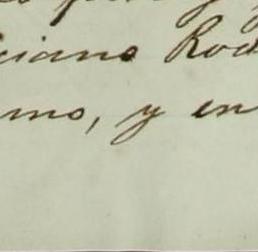 ciano Rod
mo, y en